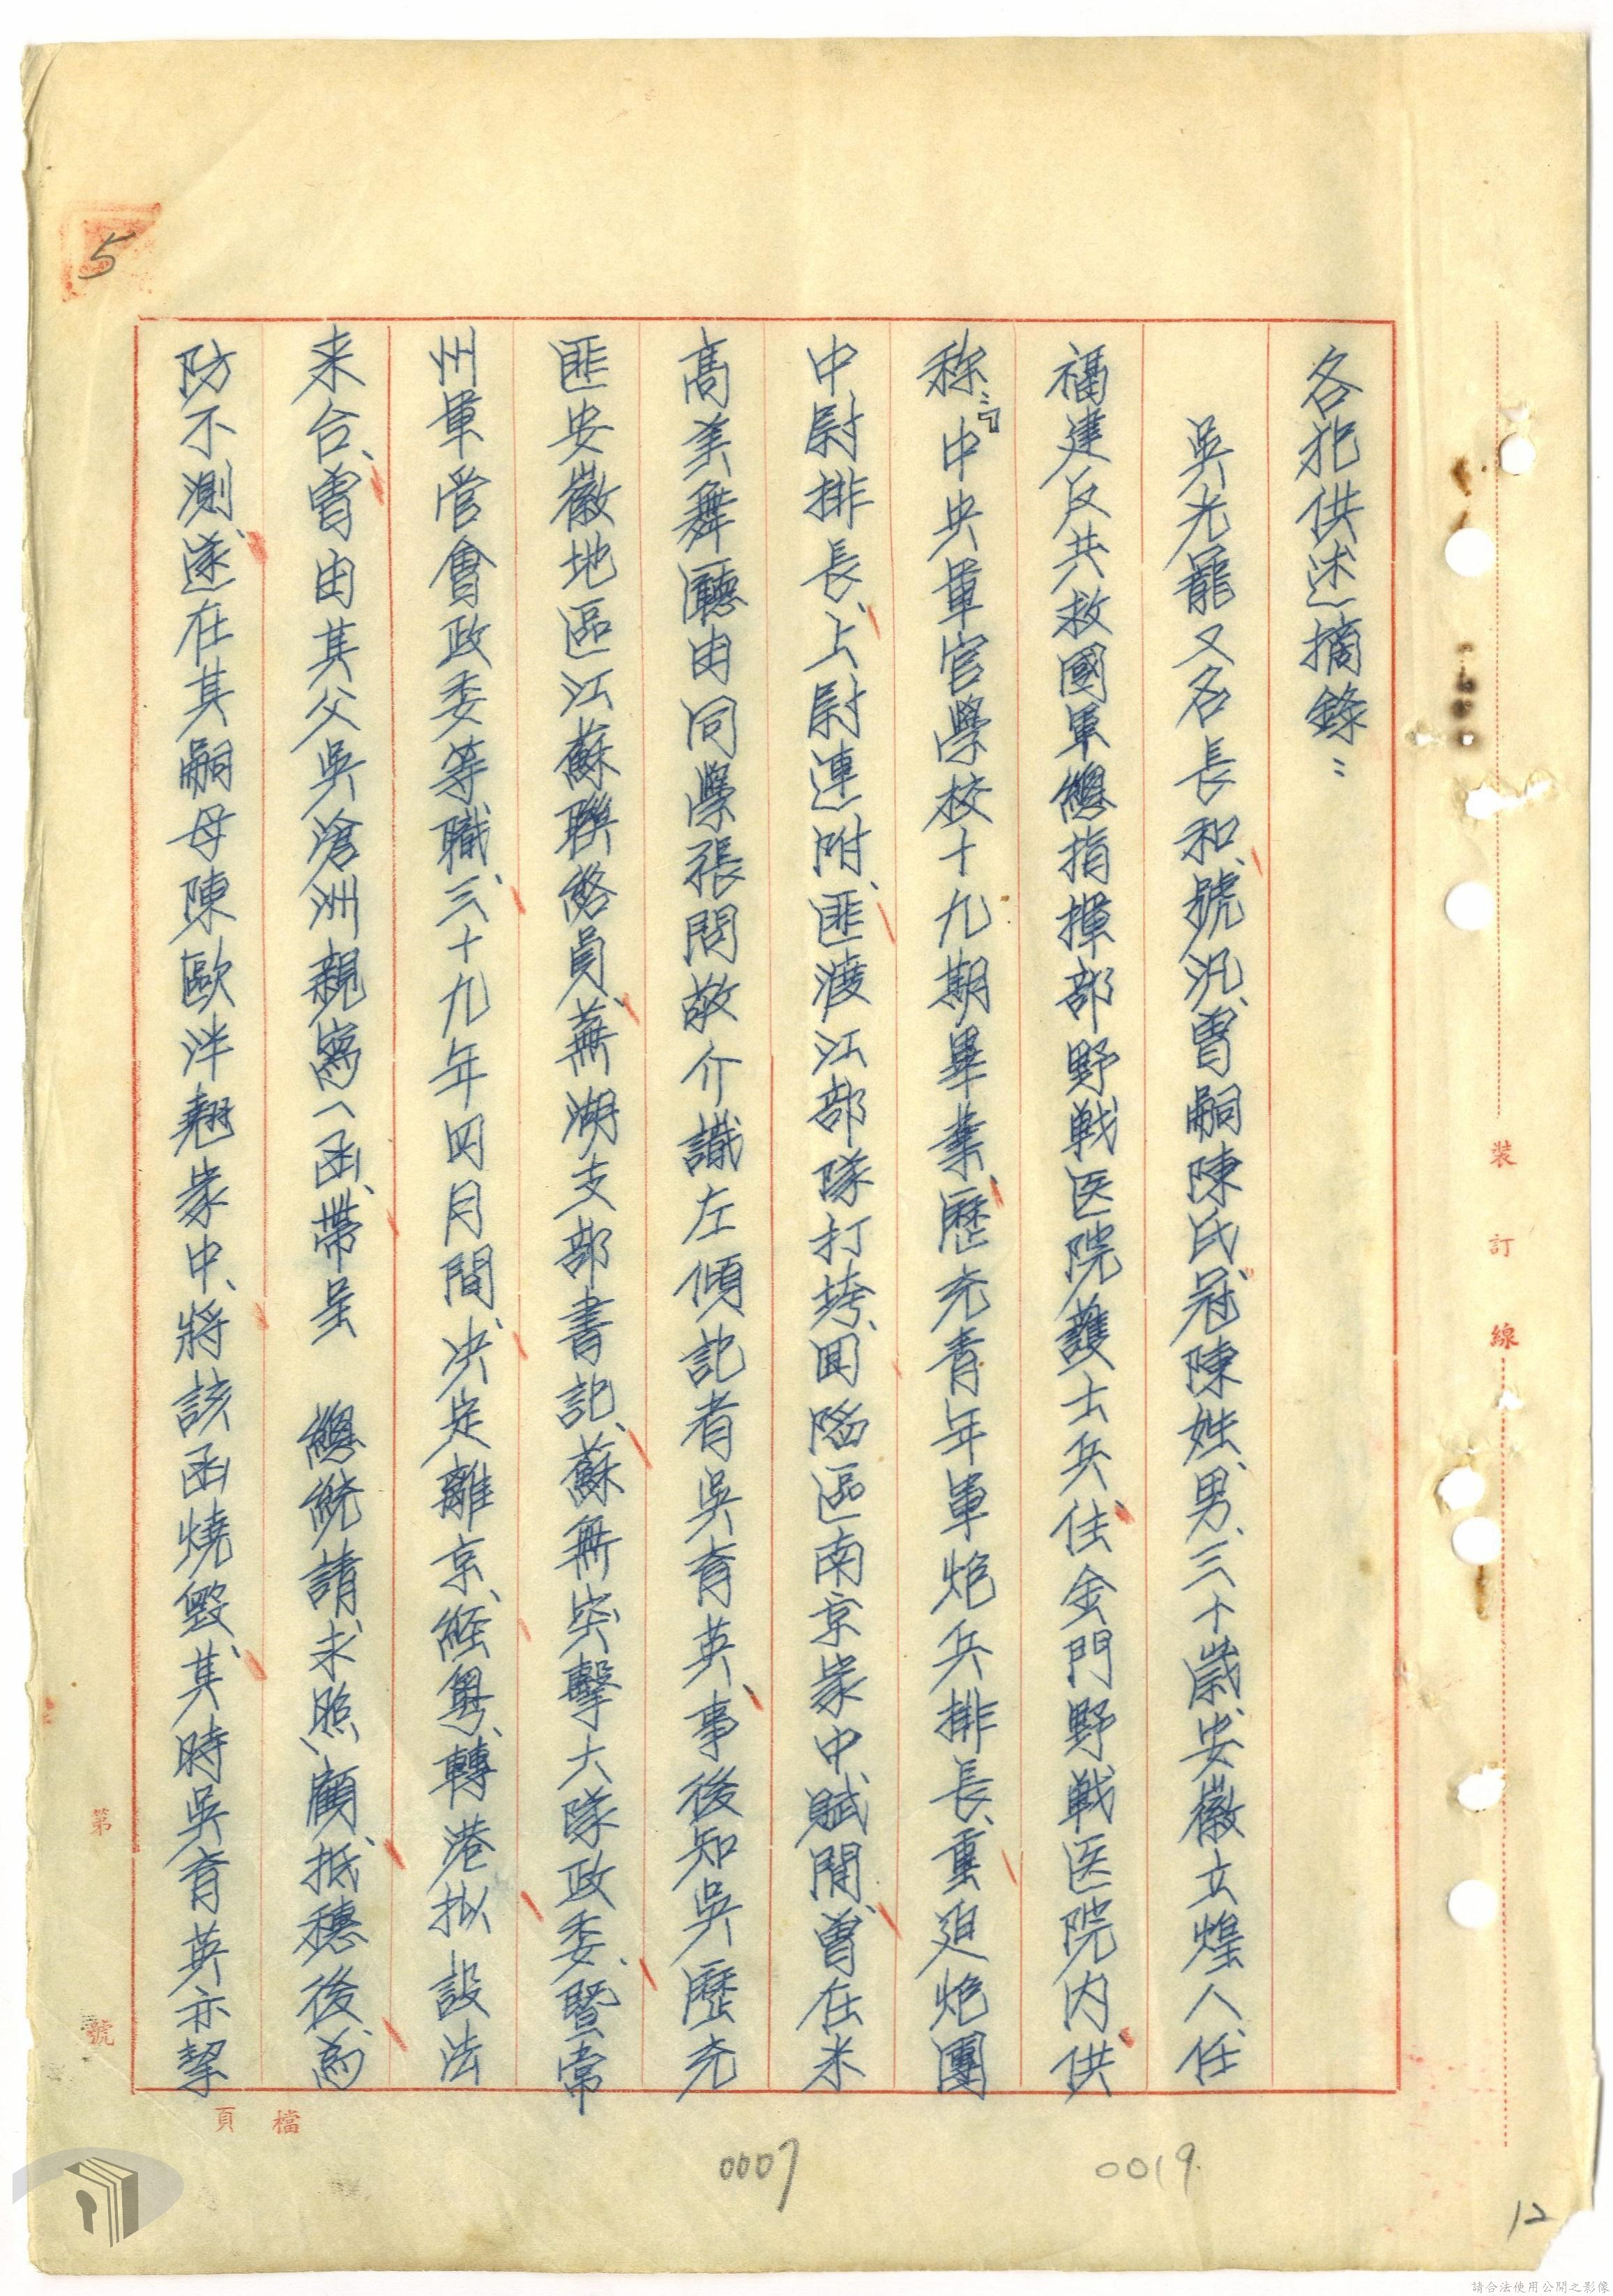 各犯供述摘錄：
吳光羆又名長和、號汎、曾嗣陳氏冠陳姓、男、三十歲、安徽立煌人任
福建反共救國軍總指揮部野戰医院護士兵住金門野戰医院內供
称：「中央軍官學校十九期畢業、歷充青年軍炮兵排長、重迫炮團
中尉排長、上尉連附、匪渡江部隊打垮、回陷區南京家中賦閒、曾在米
高美舞廳由同學張問敬介識左傾記者吳育英、事後知吳歷充
匪安徽地區江蘇聯絡員、蕪湖支部書記、蘇無突擊大隊政委、暨常
州軍管會政委等職、三十九年四月間、決定離京、經粵、轉港拟設法
来台、曾由其父吳滄洲親寫一函、帶呈　總統請求照顧、抵穗後、為
防不測、遂在其嗣母陳歐洋翹家中、將該函燒毀、其時吳育英亦挈
5
裝訂線
第號
檔頁
0007
0019
12
請合法使用公開之影像